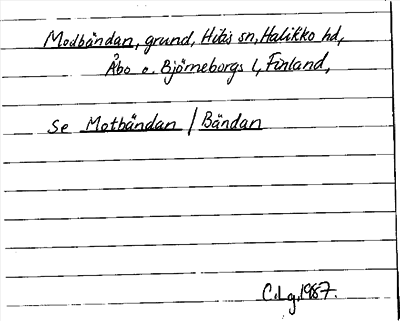 Modbändan, grund, Hitis sn, Halikko hd,
Åbo o. Björneborgs l, Finland,
se Motbändan / Bändan
C.Lg.1987.